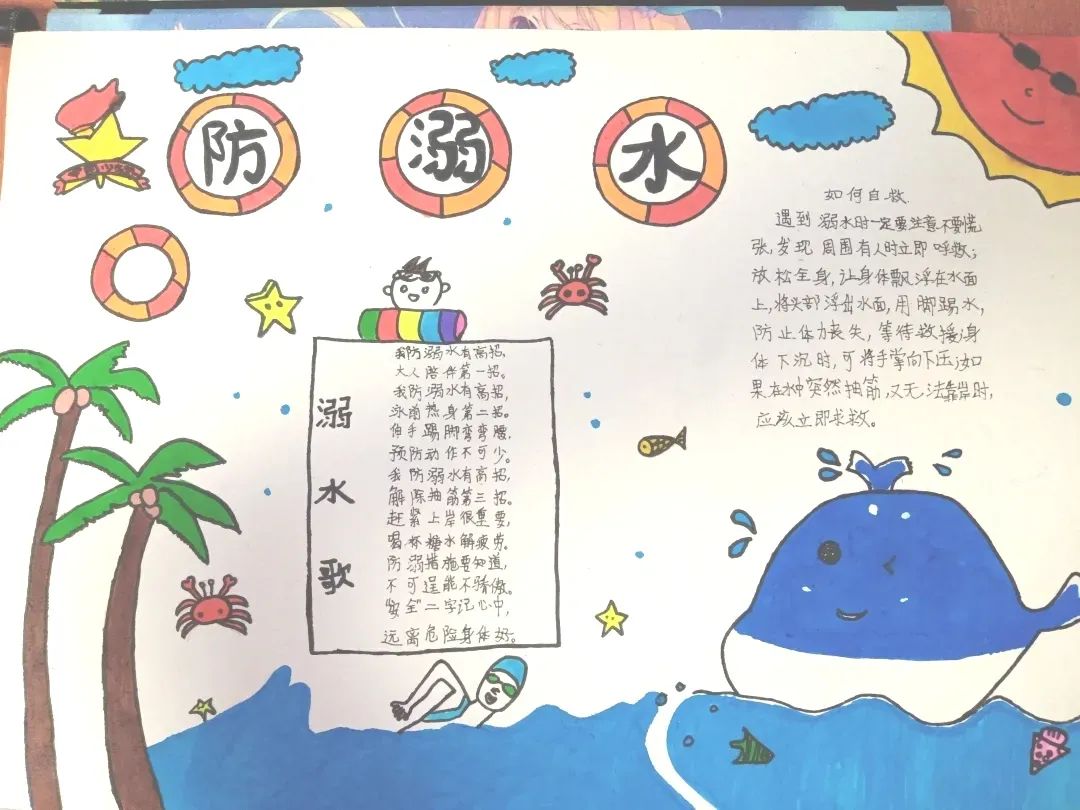 防溺水
如何自救.
遇到溺水时一定要注意不要慌
张,发现周围有人时立即呼救;
放松全身,让身体飘浮在水面
上,将头部浮出水面,用脚踢水,
防止体力丧失,等待救援;身
体下沉时,可将手掌向下压;如
果在水中突然抽筋,又无法靠岸时,
应该立即求救。
溺水歌
我防溺水有高招,
大人陪伴第一招。
我防溺水有高招,
泳前热身第二招。
伸手踢脚弯弯腰,
预防动作不可少。
我防溺水有高招,
解除抽筋第三招。
赶紧上岸很重要,
喝杯糖水解疲劳。
防溺措施要知道,
不可逞能不骄傲。
安全二字记心中,
远离危险身体好。